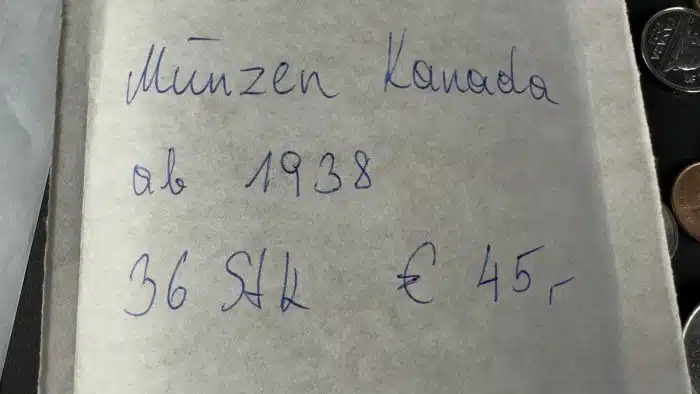 Münzen Kanada
ab 1938
36 Stk € 45,-